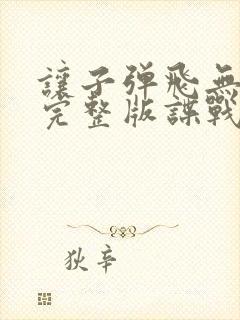 讓子弹飛無
完整版諜戰
狄辛